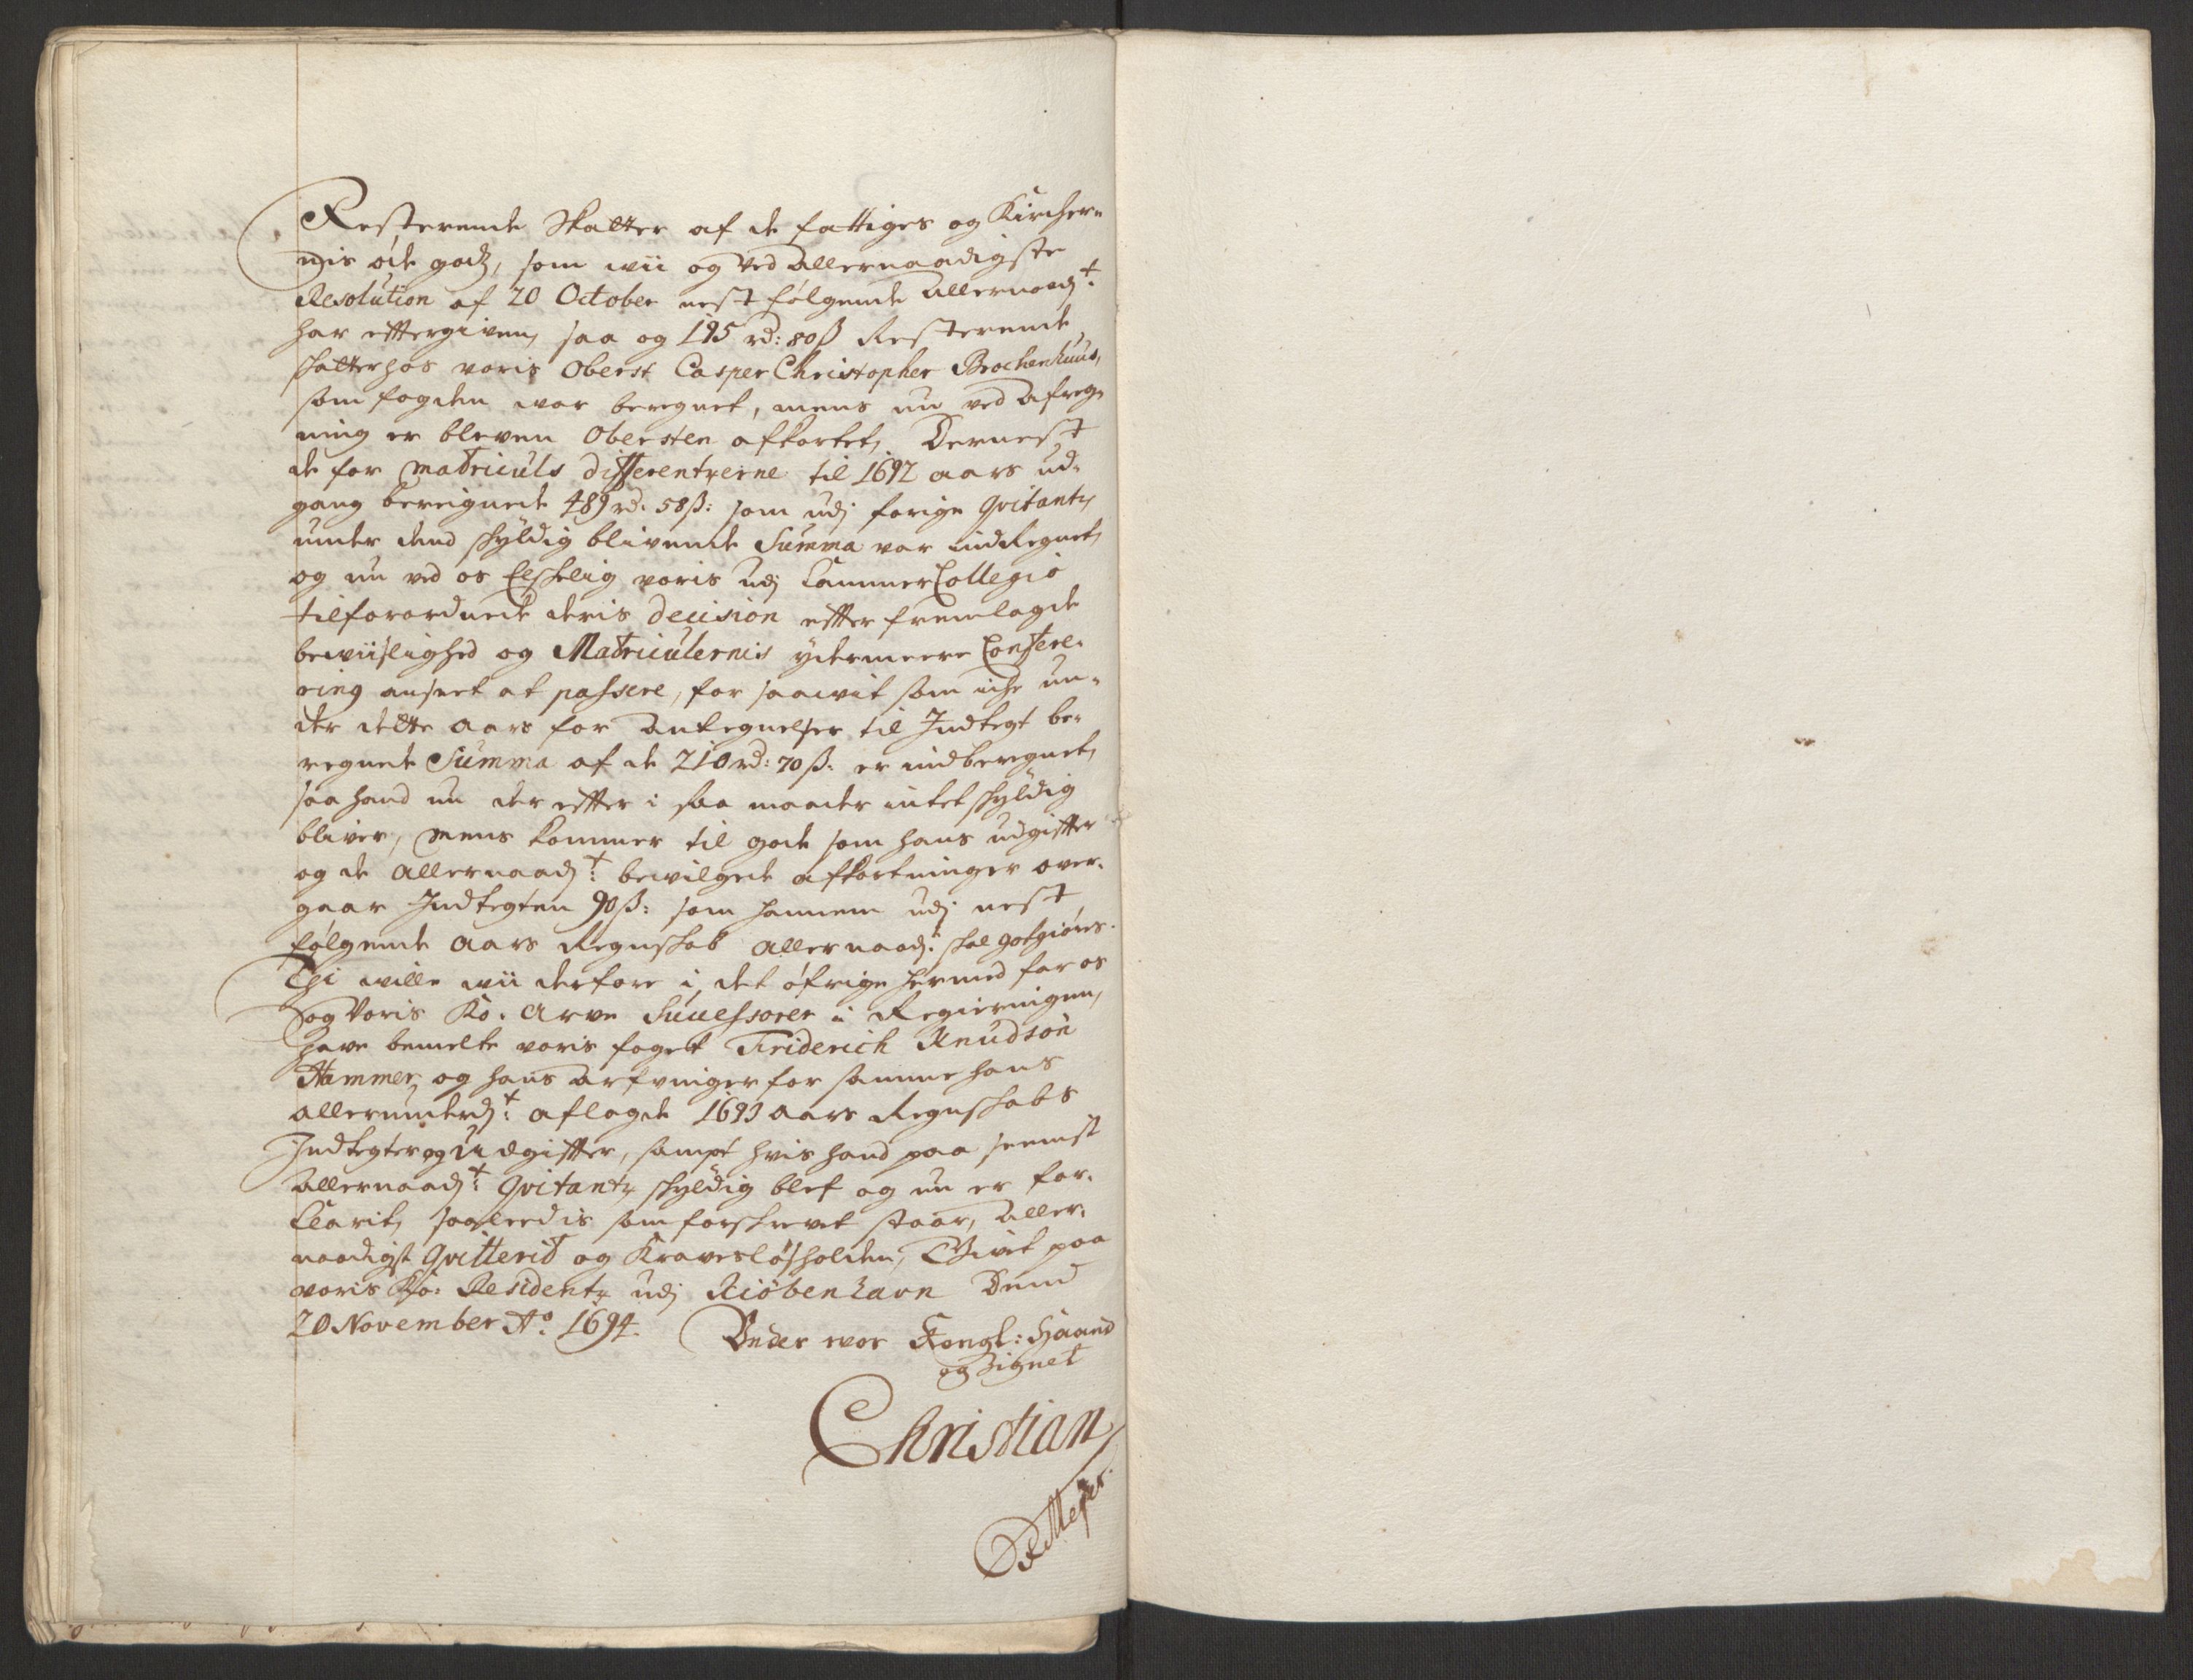 Resterende Skatter af de fattiges og Kircher-
nis øde godz, som wii og ved allernaadigste
Resolution af 20 October nest følgende allernaadst:
har efftergiven, saa og 195 rd: 80 ß Resterende
skatter hos voris Oberst Casper Christopher Brochenhuus,
som fogden war beregnet, mens nu ved afreg-
ning er bleven Obersten afkortet, Dernest
de for Matriculs differentzerne til 1692 aars ud-
gang bereignede 489 rd. 58 ß: som udj forige Qvitantz
under dend skyldig blivende Summa var indRegnet,
og nu ved os Elskelig voris udj CammerCollegio
tilforordnede deris decision effter fremlagde
bewiislighed og Matriculernis ydermeere Confere-
ring anseet at passere, for saawit som iche un-
der dette aars for antegnelser til Indtegt be-
regnede Summa af de 210 rd: 70 ß: er indberegnet,
saa hand nu der effter i saa maader intet skyldig
bliver, mens kommer til gode som hans udgiffter
og de allernaadst: bewilgede afkortninger over-
gaar Indtegten 90 ß: som hannem udj nest
følgende aars Regnskab allernaadst: skal gotgiøres.
Thi wille wii derfore i det øfrige hermed for os
og Voris Ko. Arve Successorer i Regieringen,
have bemelte voris foget Friderich Knudsøn
Hammer, og hans arfvinger for samme hans
allerunderdst: aflagde 1693 aars Regnskabs
Indtegter og Udgiffter, sampt hvis hand paa seenist
allernaadst: Qvitantz skyldig blef og nu er for-
klarit, saaleedis som forskrevet staar, aller-
naadigst Qvitterid og Kravesløsholden, Givet paa
voris Ko: Residentz udj Kiøbenhavn Dend
20 November Ao. 1694.
Under wor Kongl: Haand
og Signet
Christian
R Meÿer